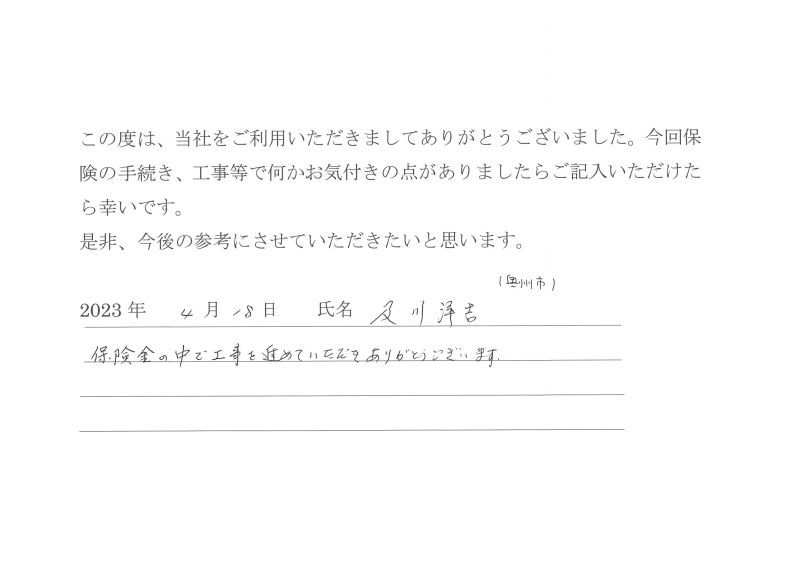 この度は、当社をご利用いただきましてありがとうございました。今回保
険の手続き、工事等で何かお気付きの点がありましたらご記入いただけた
ら幸いです。
是非、今後の参考にさせていただきたいと思います。
(奥州市)
2023 年 4 月 18 日 氏名 及川 澤吉
保険金の中で工事を進めていただきありがとうございます。